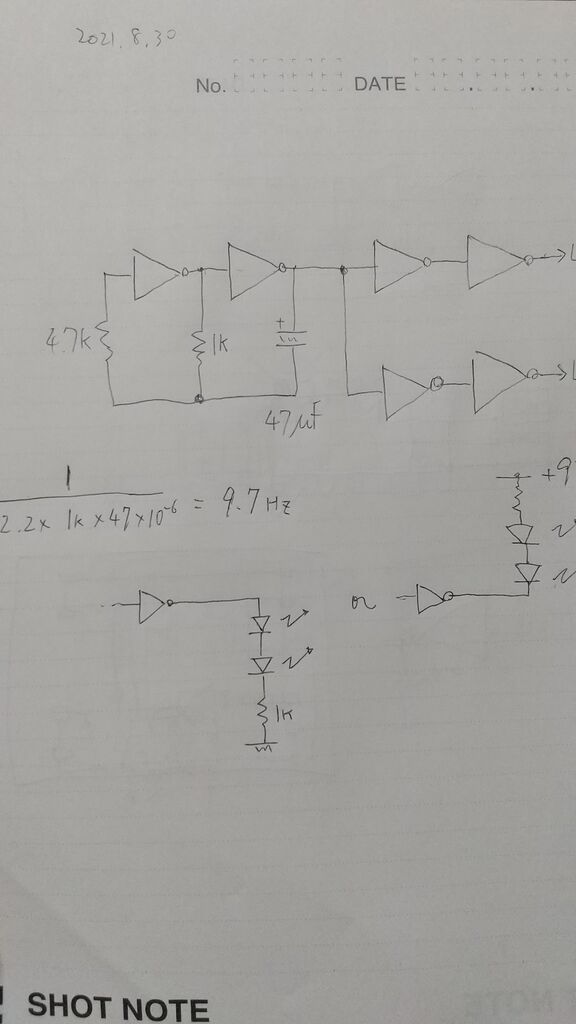 2021.8.30
No. DATE
4.7k 1k +
47μF
1
2.2× 1k×47×10⁻⁶ = 9.7Hz
+9
or
1k
SHOT NOTE